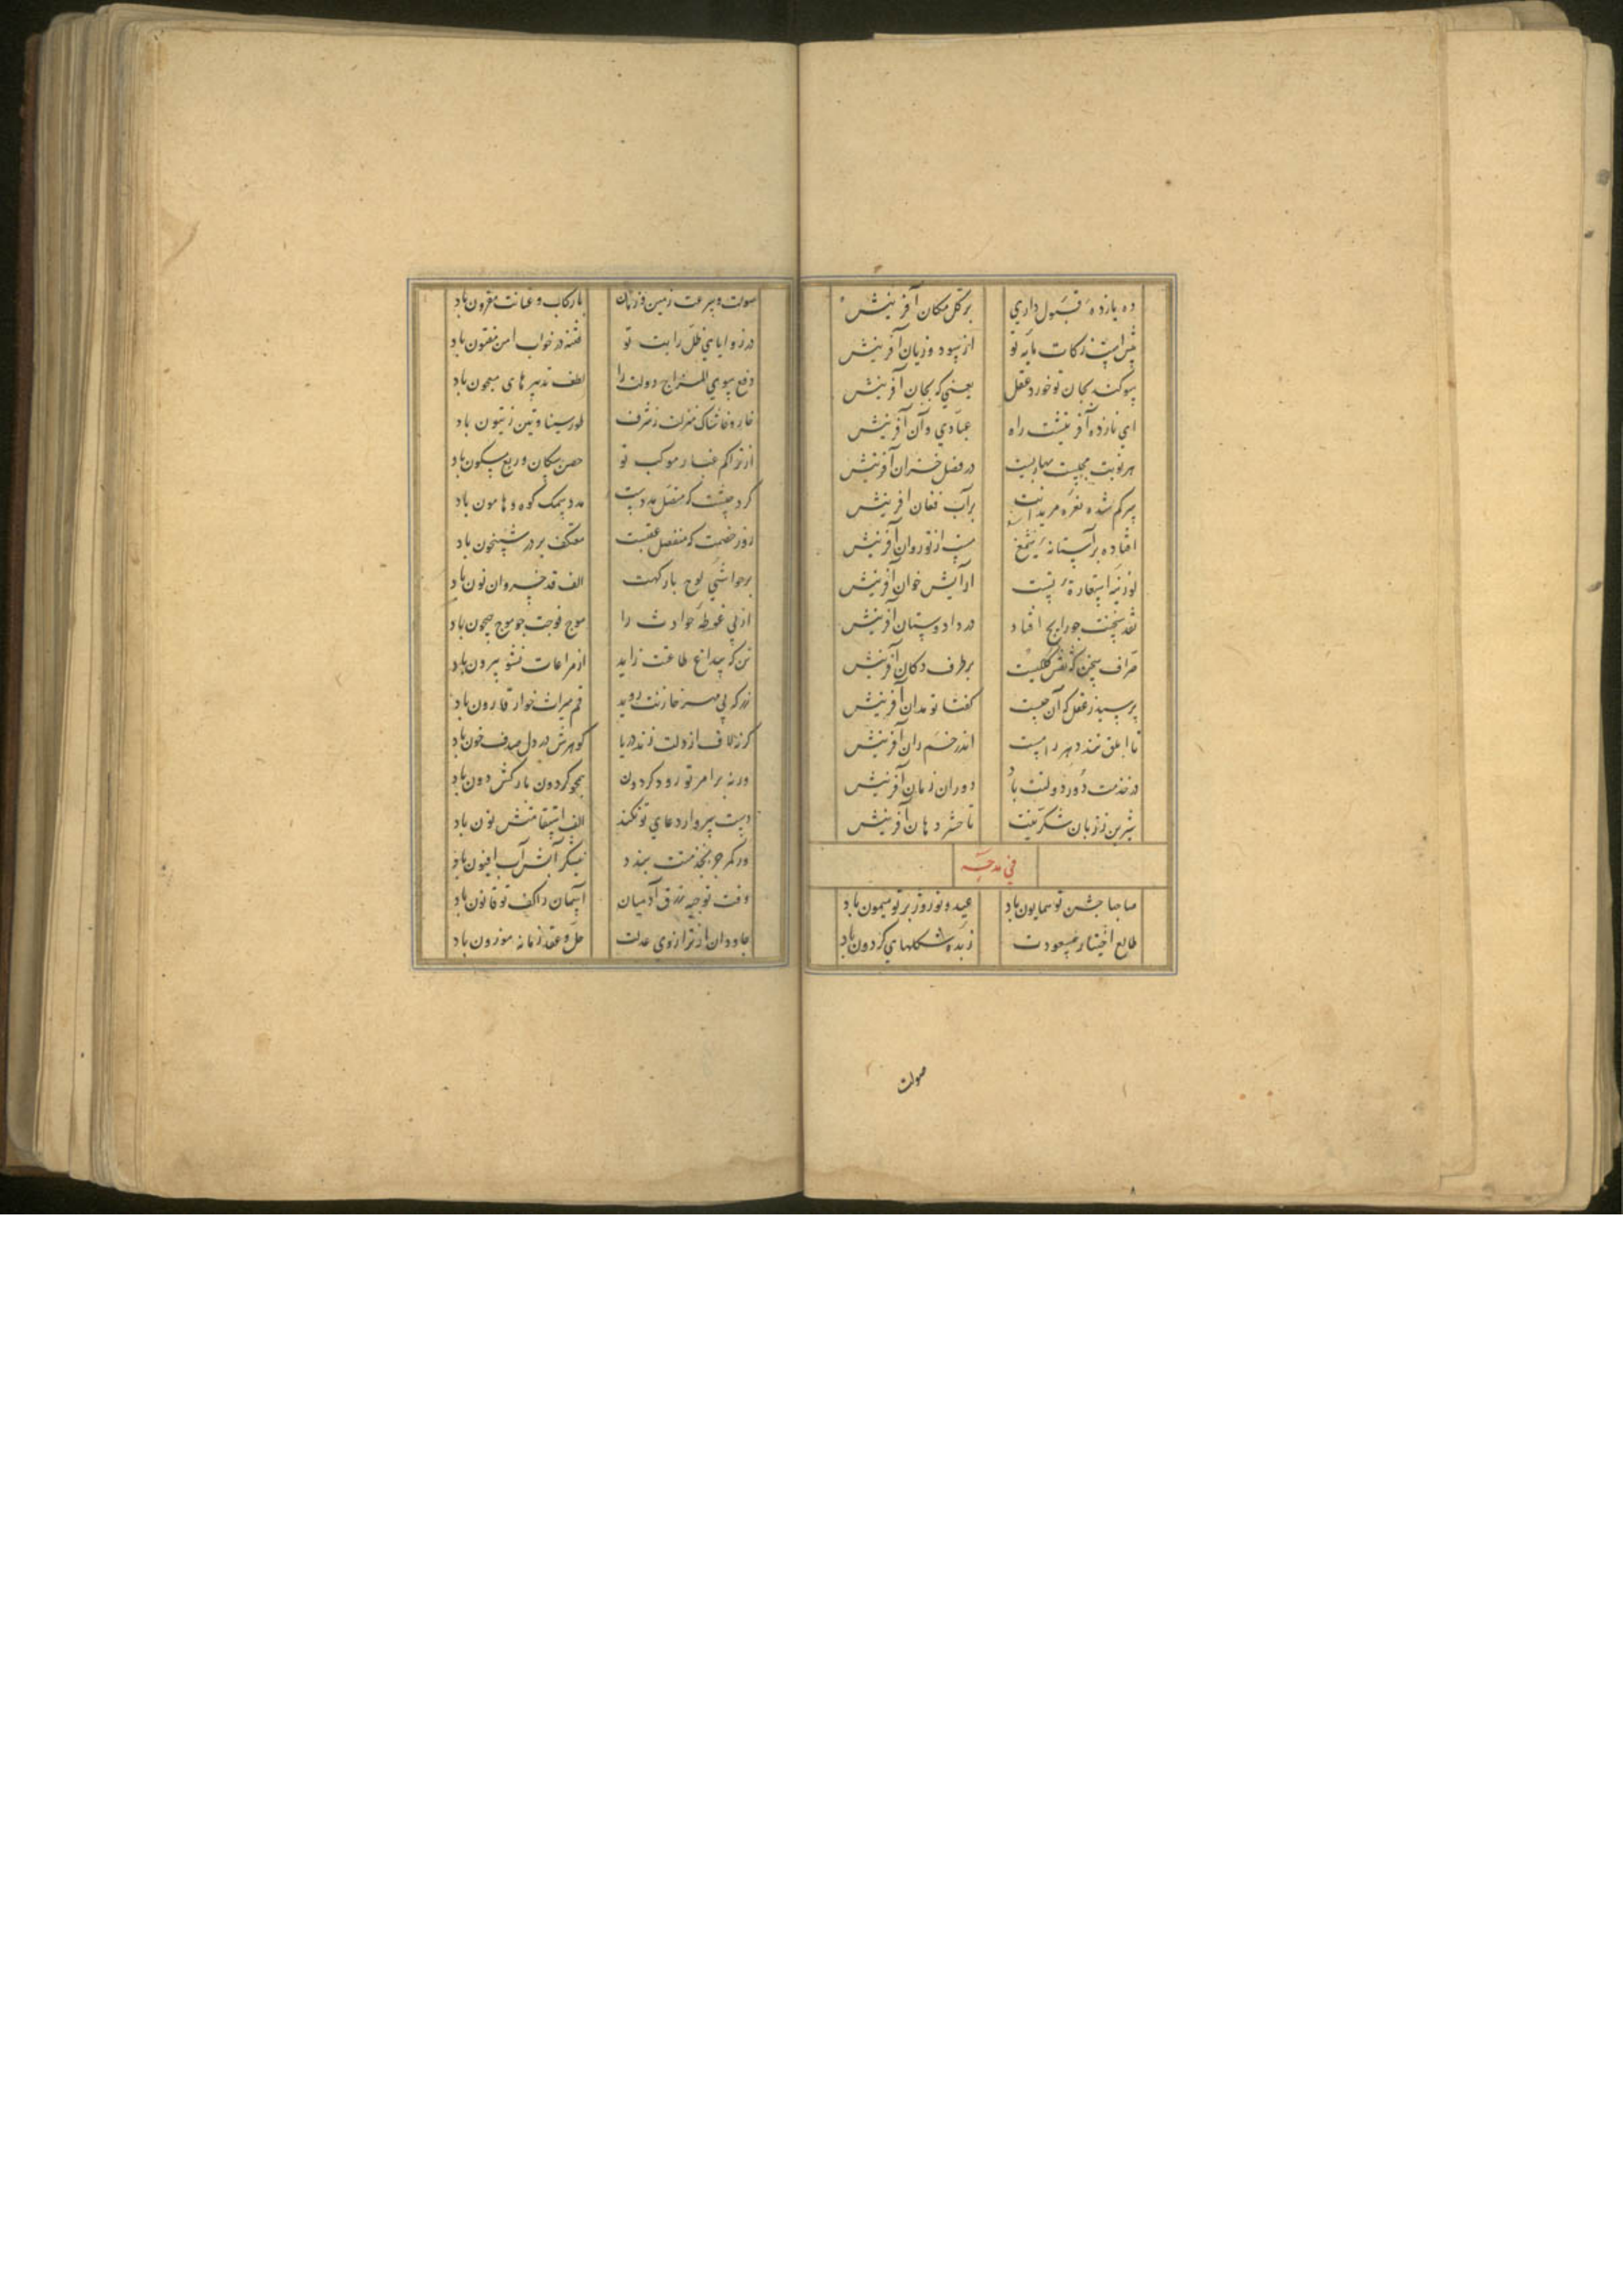 ده یازده قبول داری بر کل مکان آفرینش
بیش است زکات مایه تو از سود و زیان آفرینش
سوکند بجان تو خورد عقل یعنی که بجان آفرینش
ای نازده آفرینشت راه عبادی وآن آفرینش
هر نوبت مجلست بهاریست در فصل خزان آفرینش
برآب فغان آفرینش
افتاده بر آستانه شمع از نوروان آفرینش
لوزینه استعارة تست آرایش خوان آفرینش
نقد سخنت جو رایج افتاد در داد وستان آفرینش
صراف سخن که نفس کلیست بر طرف دکان آفرینش
پرسید ز عقل که آن چیست کفتا تو مدان آفرینش
تا ابلق تند دهر رامست اندر خم ران آفرینش
در خدمت دور دولتت باد دوران زمان آفرینش
شیرین ز زبان شکر منت تا حشر دهان آفرینش
في مدحه
صاحبا جشن تو همایون باد عید و نوروز بر تو میمون باد
طالع اختیار مسعودت زبده شکلهای کردون باد
صولت
صولت وسرعت زمین و زمان با رکاب و عنانت مقرون باد
در زوایای ظل رایت تو فتنه در خواب امن مفتون باد
دفع سوی المزاج دولت را لطف تدبیرهای معجون باد
خار و خاشاک منزلت ز شرف طور سینا و تین و زیتون باد
از تراکم غبار موکب تو حصن سکان وربع مسکون باد
کرد جیشت که متصل مددست مدد سمک کوه و هامون باد
روز خصمت که منفصل عقبست معتکف بر در شبیخون باد
بر حواشی لوح بارکهت الف قد خسروان نون باد
از پی غوطه حوادث را موج فوجت جو موج جیحون باد
تن که بی داغ طاعت زاید از مراعات نشو بیرون باد
زر که بی مهر خازنت روید قسم میراث خوار قارون باد
کر زند لاف از دلت دریا کوهرش در دل صدف خون باد
ور نه بر امر تو رود کردون همجو کردون بارکش دون باد
الف استقامتش نون باد
ور کمر جز بخدمتت بندد نیشکر آبش آب افیون باد
وقت توجیه رزق آدمیان آسمان را کف تو قانون باد
جاودان از ترازوی عدلت حل و عقد زمانه موزون باد